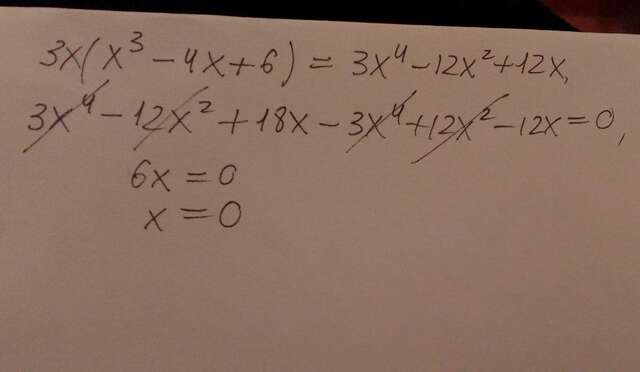 3x(x³ − 4x + 6) = 3x⁴ − 12x² + 12x,
3x⁴ − 12x² + 18x − 3x⁴ + 12x² − 12x = 0,
6x = 0
x = 0